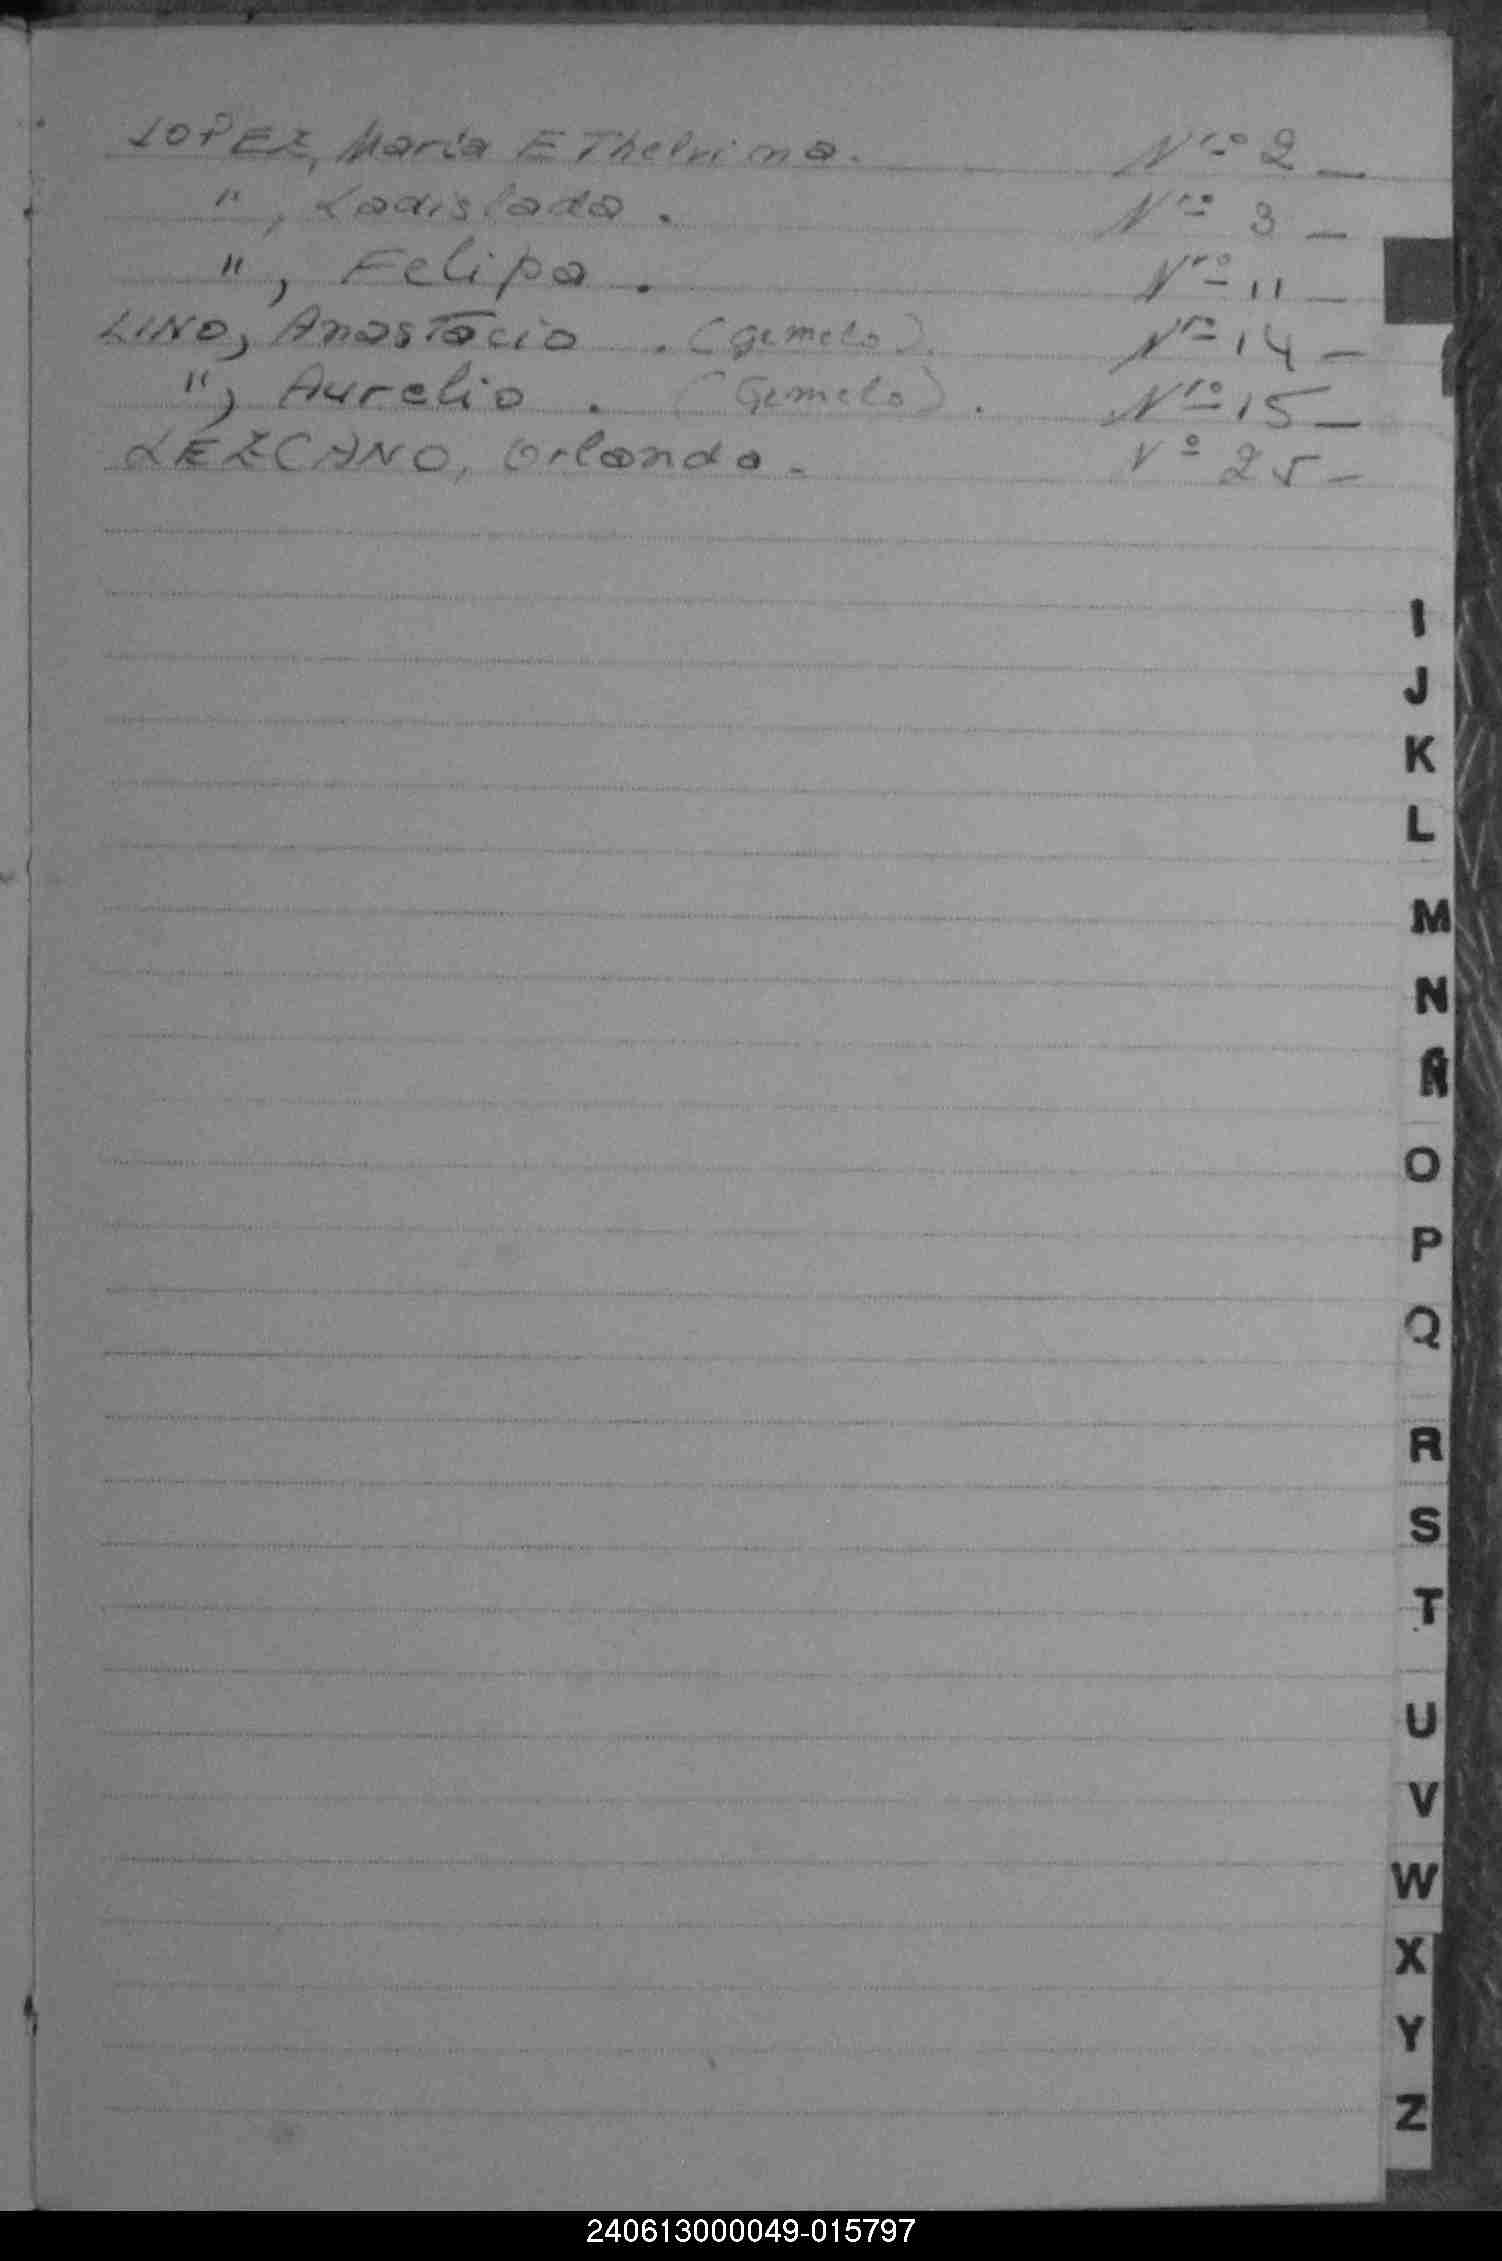 LOPEZ, Maria EThelvina. Nro 2 —
" , Ladislada. Nro 3 —
" , Felipa. Nro 11 —
LINO, Anastacio. (gemelo). Nro 14 —
" , Aurelio. (Gemelo). Nro 15 —
LEZCANO, Orlando. Nº 25 —
I
J
K
L
M
N
Ñ
O
P
Q
R
S
T
U
V
W
X
Y
Z
240613000049-015797